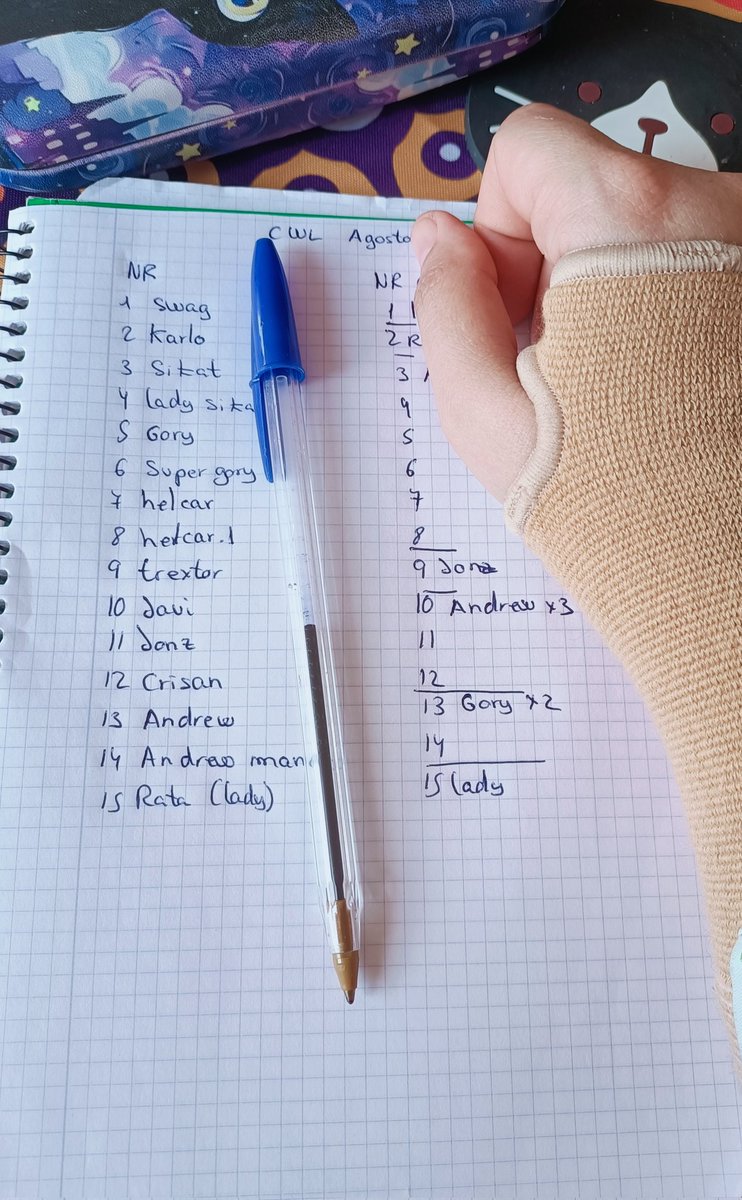 CWL Agosto
NR
1 Swag
2 Karlo
3 Sikat
4 lady sika
5 Gory
6 Super gory
7 helcar
8 helcar.1
9 trextor
10 Javi
11 Jonz
12 Crisan
13 Andrew
14 Andrew man
15 Rata (lady)
NR
1
2 R
3
4
5
6
7
8
9 Jonz
10 Andrew x3
11
12
13 Gory x2
14
15 lady